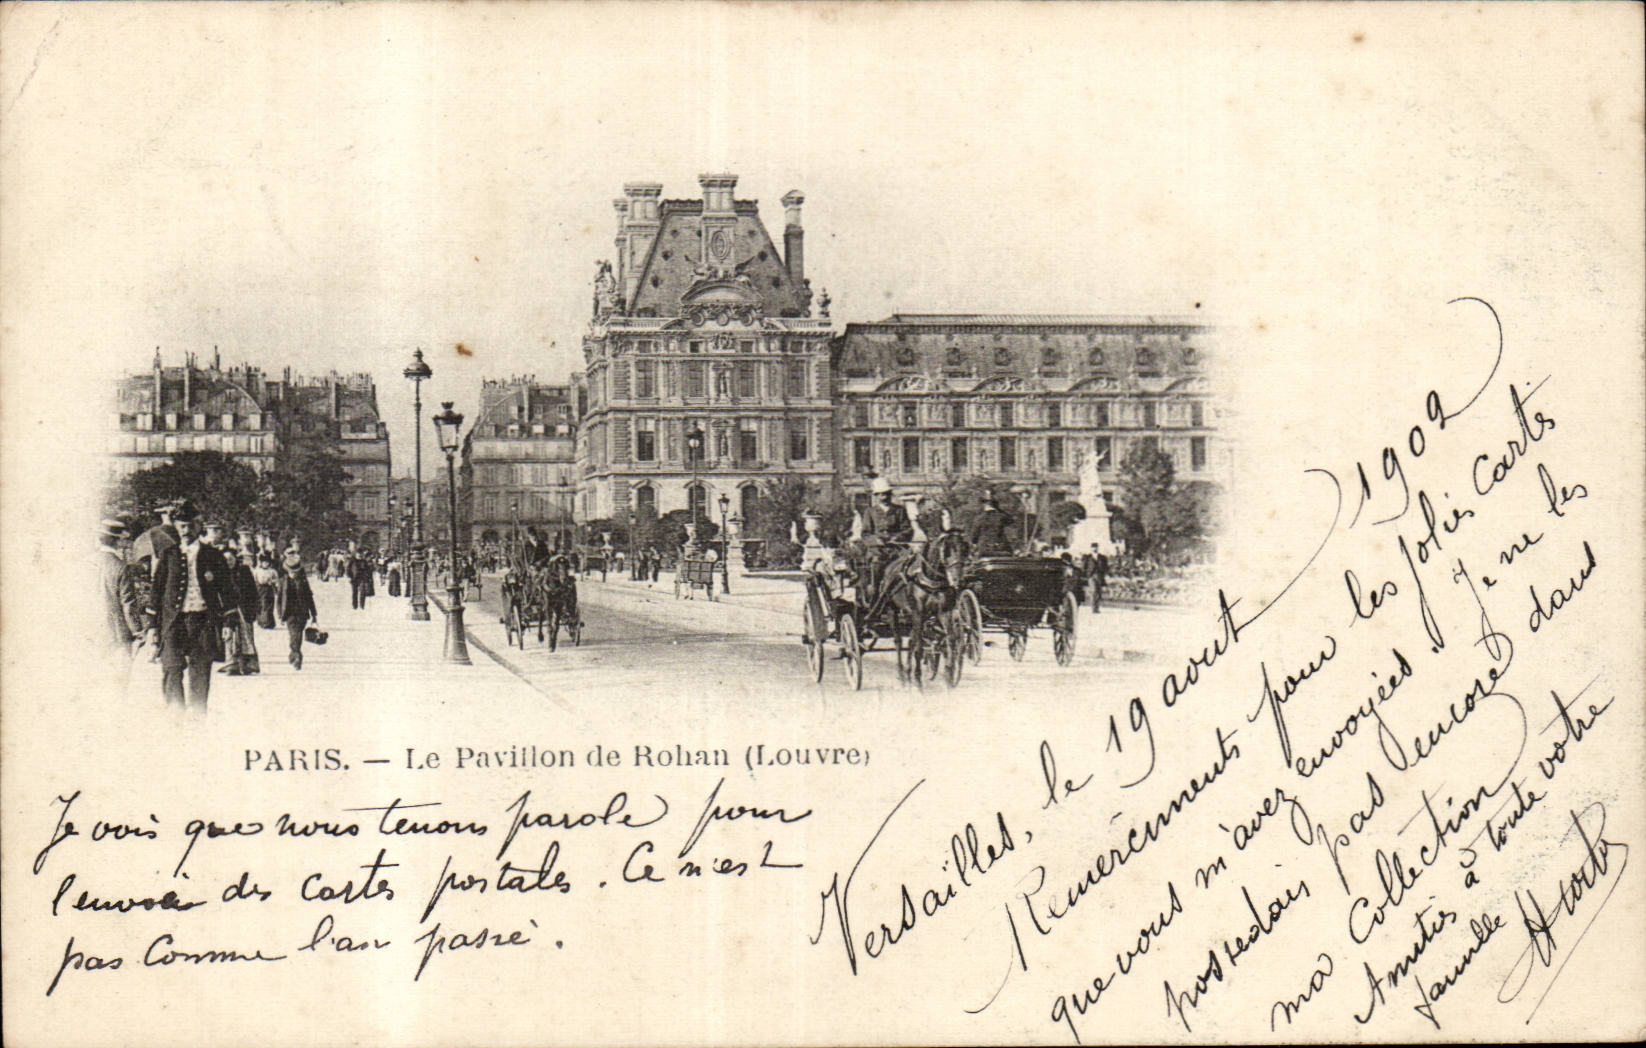 PARIS. — Le Pavillon de Rohan (Louvre)
Je vois que nous tenons parole pour
l'envoi des cartes postales. Ce n'est
pas comme l'an passé.
Versailles, le 19 aout 1902
Remerciments pour les jolies cartes
que vous m'avez envoyées. Je ne les
possedais pas encore dans
ma collection
Amitiés à toute votre
famille